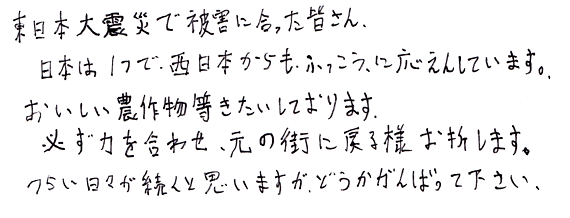 東日本大震災で被害に合った皆さん、
日本は1つで、西日本からも、ふっこう、に応えんしています。
おいしい農作物等きたいしております。
必ず力を合わせ、元の街に戻る様お祈します。
つらい日々が続くと思いますが、どうかがんばって下さい、